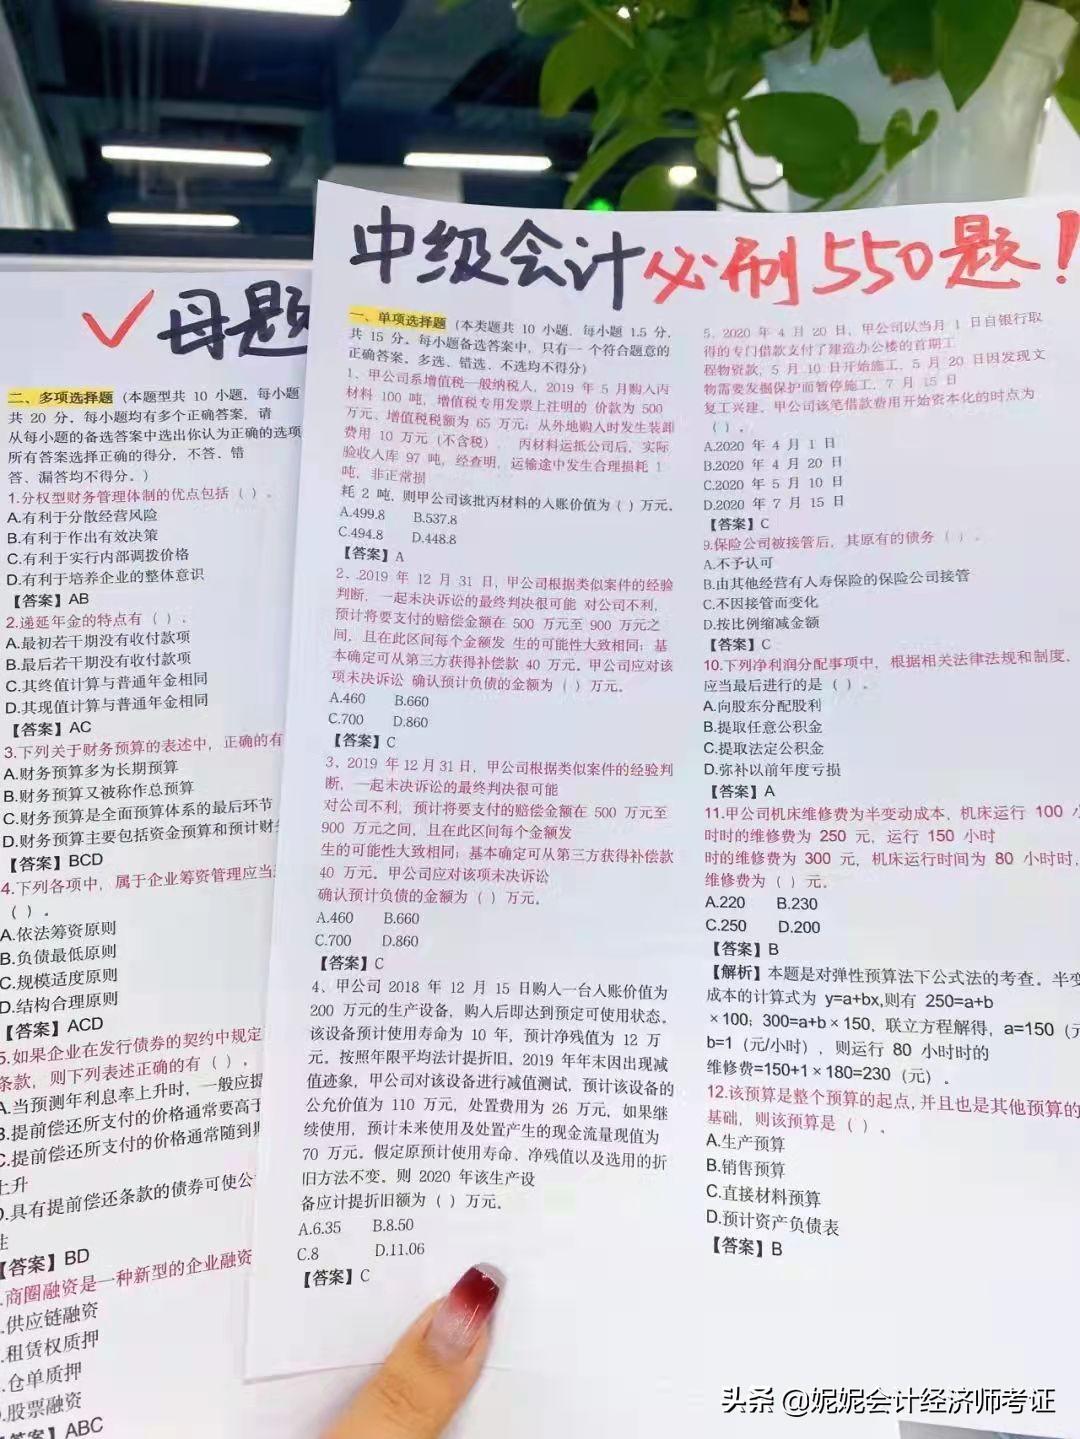 母题
二、多项选择题（本题型共 10 小题，每小题
共 20 分。每小题均有多个正确答案，请
从每小题的备选答案中选出你认为正确的选项
所有答案选择正确的得分，不答、错
答、漏答均不得分。）
1.分权型财务管理体制的优点包括（ ）。
A.有利于分散经营风险
B.有利于作出有效决策
C.有利于实行内部调拨价格
D.有利于培养企业的整体意识
【答案】AB
2.递延年金的特点有（ ）。
A.最初若干期没有收付款项
B.最后若干期没有收付款项
C.其终值计算与普通年金相同
D.其现值计算与普通年金相同
【答案】AC
3.下列关于财务预算的表述中，正确的有
A.财务预算多为长期预算
B.财务预算又被称作总预算
C.财务预算是全面预算体系的最后环节
D.财务预算主要包括资金预算和预计财
【答案】BCD
4.下列各项中，属于企业筹资管理应当
（ ）。
A.依法筹资原则
B.负债最低原则
C.规模适度原则
D.结构合理原则
【答案】ACD
5.如果企业在发行债券的契约中规定
条款，则下列表述正确的有（ ）。
A.当预测年利息率上升时，一般应提
B.提前偿还所支付的价格通常要高于
C.提前偿还所支付的价格通常随到
上升
D.具有提前偿还条款的债券可使公
性
【答案】BD
.商圈融资是一种新型的企业融资
.供应链融资
.租赁权质押
.仓单质押
.股票融资
【答案】ABC
中级会计必刷550题！
一、单项选择题（本类题共 10 小题，每小题 1.5 分，
共 15 分。每小题备选答案中，只有一 个符合题意的
正确答案。多选、错选、不选均不得分）
1、甲公司系增值税一般纳税人，2019 年 5 月购入丙
材料 100 吨，增值税专用发票上注明的 价款为 500
万元、增值税税额为 65 万元；从外地购入时发生装卸
费用 10 万元（不含税）。 丙材料运抵公司后，实际
验收入库 97 吨，经查明，运输途中发生合理损耗 1
吨，非正常损
耗 2 吨，则甲公司该批丙材料的入账价值为（ ）万元。
A.499.8 B.537.8
C.494.8 D.448.8
【答案】A
2、.2019 年 12 月 31 日，甲公司根据类似案件的经验
判断，一起未决诉讼的最终判决很可能 对公司不利，
预计将要支付的赔偿金额在 500 万元至 900 万元之
间，且在此区间每个金额发 生的可能性大致相同；基
本确定可从第三方获得补偿款 40 万元。甲公司应对该
项未决诉讼 确认预计负债的金额为（ ）万元。
A.460 B.660
C.700 D.860
【答案】C
3、2019 年 12月31日，甲公司根据类似案件的经验判
断，一起未决诉讼的最终判决很可能
对公司不利，预计将要支付的赔偿金额在 500 万元至
900 万元之间，且在此区间每个金额发
生的可能性大致相同；基本确定可从第三方获得补偿款
40 万元。甲公司应对该项未决诉讼
确认预计负债的金额为（ ）万元。
A.460 B.660
C.700 D.860
【答案】C
4、甲公司 2018 年 12 月 15 日购入一台入账价值为
200 万元的生产设备，购入后即达到预定可使用状态。
该设备预计使用寿命为 10 年，预计净残值为 12 万
元。按照年限平均法计提折旧。2019 年年末因出现减
值迹象，甲公司对该设备进行减值测试，预计该设备的
公允价值为 110 万元，处置费用为 26 万元，如果继
续使用，预计未来使用及处置产生的现金流量现值为
70 万元。假定原预计使用寿命、净残值以及选用的折
旧方法不变。则 2020 年该生产设
备应计提折旧额为（ ）万元。
A.6.35 B.8.50
C.8 D.11.06
【答案】C
5、2020 年 4 月 20 日，甲公司以当月 1 日自银行取
得的专门借款支付了建造办公楼的首期工
程物资款，5 月 10 日开始施工，5 月 20 日因发现文
物需要发掘保护而暂停施工，7 月 15 日
复工兴建。甲公司该笔借款费用开始资本化的时点为
（ ）。
A.2020 年 4 月 1 日
B.2020 年 4 月 20 日
C.2020 年 5 月 10 日
D.2020 年 7 月 15 日
【答案】C
9.保险公司被接管后，其原有的债务（ ）。
A.不予认可
B.由其他经营有人寿保险的保险公司接管
C.不因接管而变化
D.按比例缩减金额
【答案】C
10.下列净利润分配事项中，根据相关法律法规和制度，
应当最后进行的是（ ）。
A.向股东分配股利
B.提取任意公积金
C.提取法定公积金
D.弥补以前年度亏损
【答案】A
11.甲公司机床维修费为半变动成本，机床运行 100 小
时时的维修费为 250 元，运行 150 小时
时的维修费为 300 元，机床运行时间为 80 小时时，
维修费为（ ）元。
A.220 B.230
C.250 D.200
【答案】B
【解析】本题是对弹性预算法下公式法的考查。半变
成本的计算式为 y=a+bx,则有 250=a+b
×100；300=a+b×150，联立方程解得，a=150（元
b=1（元/小时），则运行 80 小时时的
维修费=150+1×180=230（元）。
12.该预算是整个预算的起点,并且也是其他预算的
基础，则该预算是（ ）。
A.生产预算
B.销售预算
C.直接材料预算
D.预计资产负债表
【答案】B
头条 @妮妮会计经济师考证